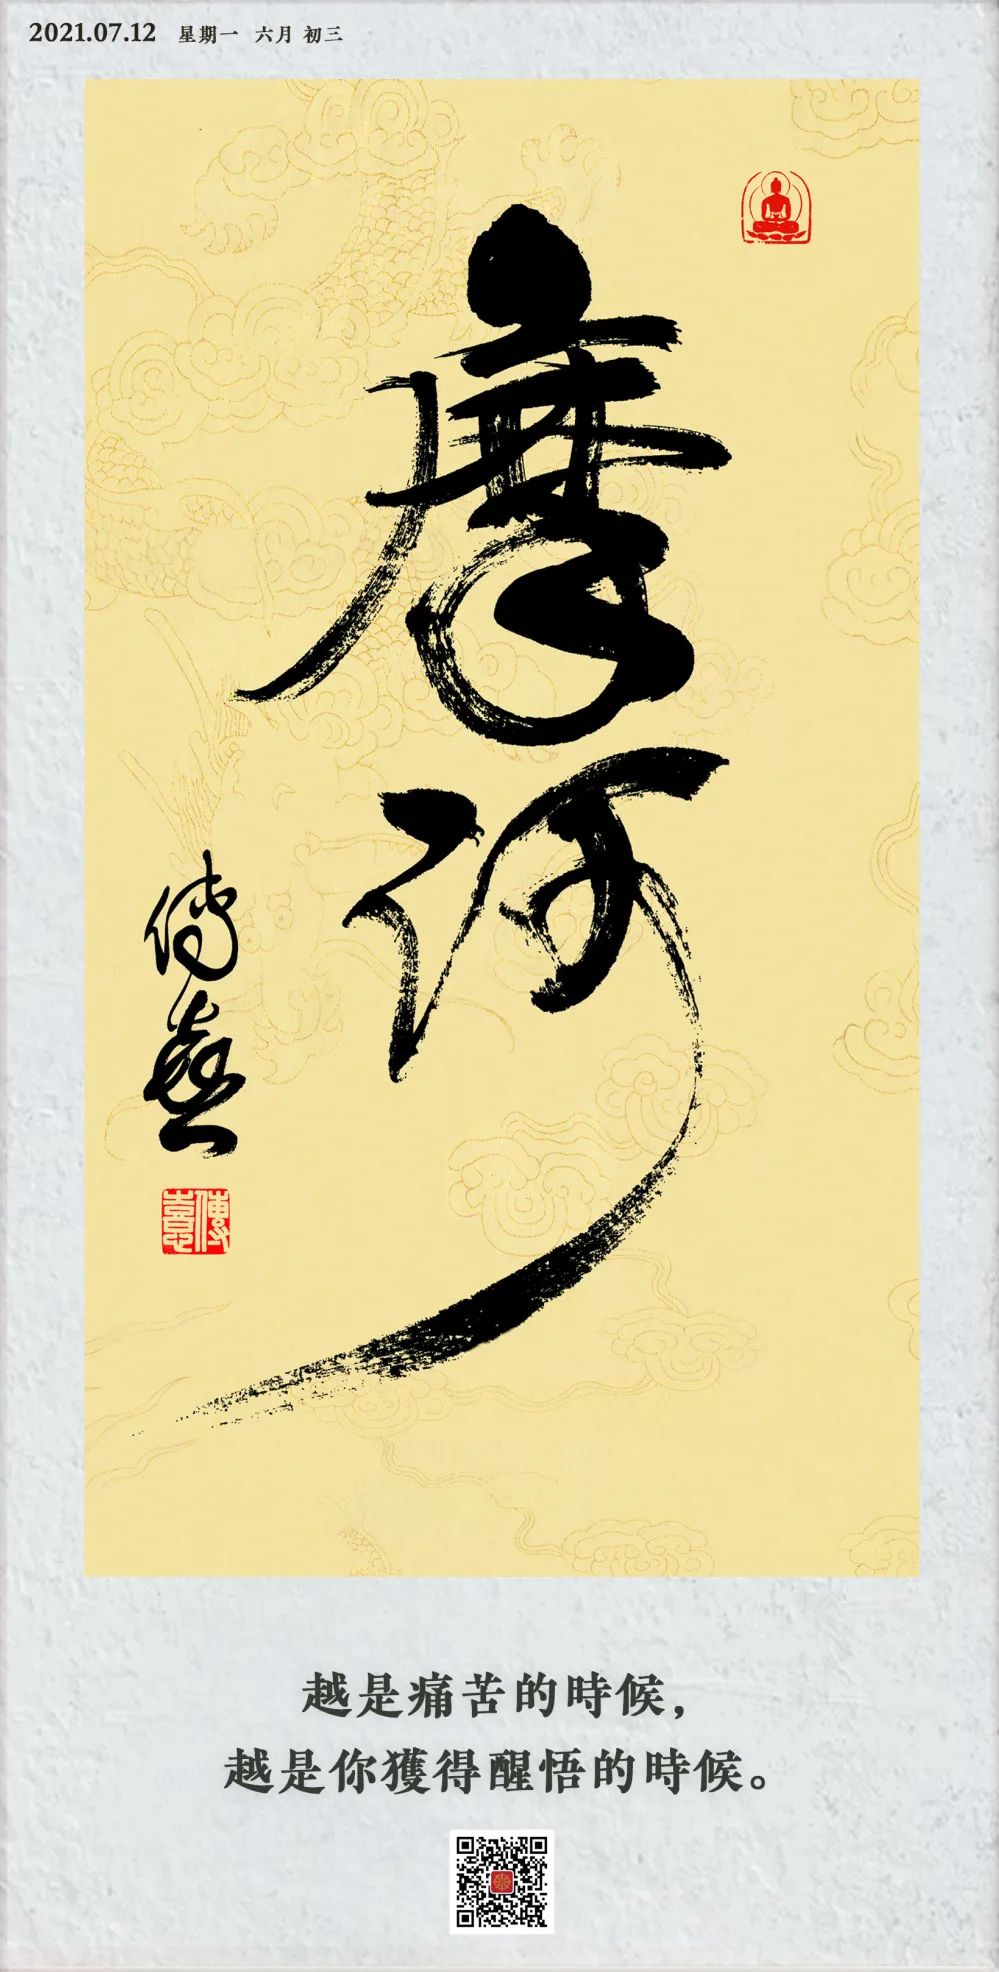 2021.07.12 星期一 六月 初三
摩訶
傳喜
傳喜
越是痛苦的時候，
越是你獲得醒悟的時候。